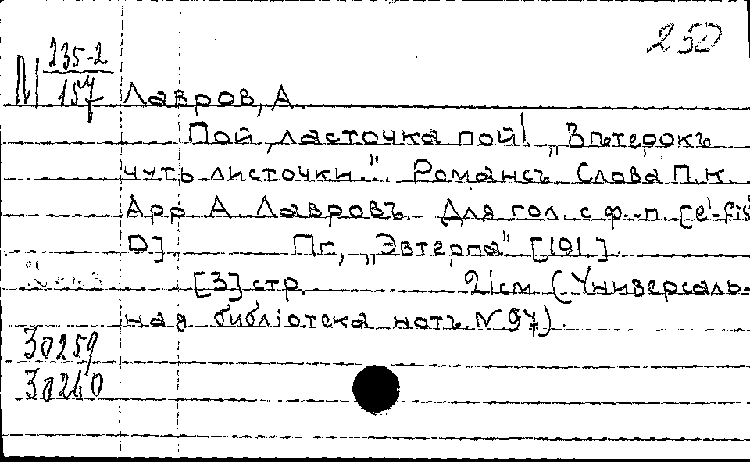 250
М 235-2
157
Лавров, А.
Пой, ласточка пой! „Вѣтерокъ
чуть листочки..." Романсъ. Слова П.К.
Арр А. Лавровъ. Для гол. с ф.-п. [e'-fis
D] Пг., „Эвтерпа" [191 ]
[3] стр. 21см (Универсаль-
ная библіотека нотъ N 97).
30259
30260